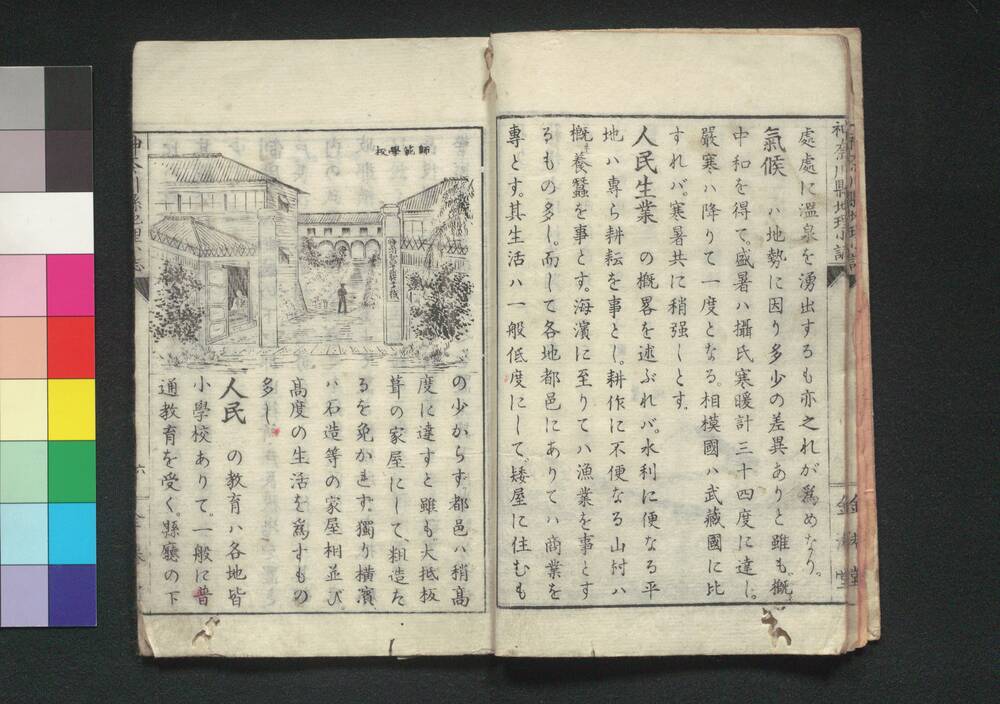 處處に溫泉を湧出するも亦之れが爲めなり。
氣候　ハ地勢に因り多少の差異ありと雖も、概
中和を得て。盛暑ハ攝氏寒暖計三十四度に達し。
嚴寒ハ降りて一度となる。相模國ハ武藏國に比
すれバ、寒暑共に稍强しとす。
人民生業　の概畧を述ぶれバ。水利に便なる平
地ハ專ら耕耘を事とし。耕作に不便なる山村ハ
概養蠶を事とす。海濱に至りてハ漁業を事とす
るもの多し。而して各地都邑にありてハ商業を
專とす。其生活ハ一般低度にして、矮屋に住むも
師範學校
の少からず。都邑ハ稍高
度に達すと雖も、大抵板
葺の家屋にして、粗造た
るを免かれず。獨り橫濱
ハ石造等の家屋相並び
高度の生活を爲すもの
多し。
人民　の敎育ハ各地皆
小學校ありて。一般に普
通敎育を受く。縣廳の下
六